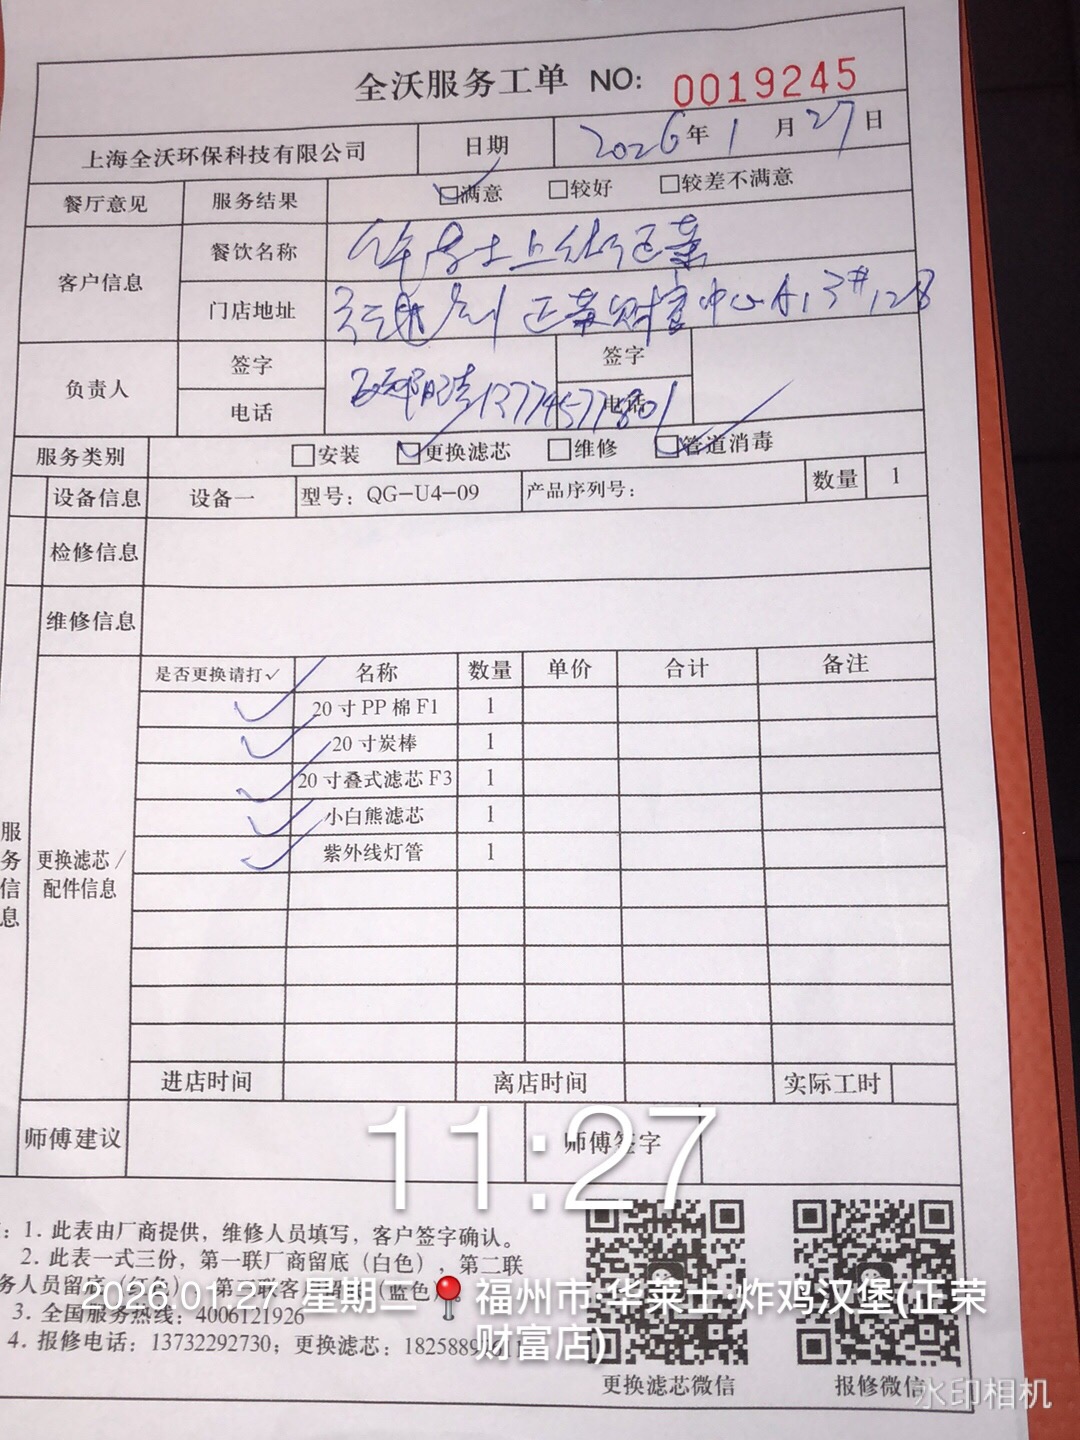 全沃服务工单 NO: 0019245
上海全沃环保科技有限公司 日期 2026年1月27日
餐厅意见 服务结果 ☑满意 □较好 □较差不满意
客户信息 餐饮名称 华莱士上街正荣
门店地址 正荣财富中心A13#128
负责人 签字 签字
电话 13774577801 电话
服务类别 □安装 ☑更换滤芯 □维修 ☑管道消毒
设备信息 设备一 型号：QG-U4-09 产品序列号： 数量 1
检修信息
维修信息
是否更换请打✓ 名称 数量 单价 合计 备注
✓ 20寸PP棉F1 1
✓ 20寸炭棒 1
✓ 20寸叠式滤芯F3 1
✓ 小白熊滤芯 1
✓ 紫外线灯管 1
服务信息
更换滤芯/
配件信息
进店时间 离店时间 实际工时
师傅建议 师傅签字
11:27
：1. 此表由厂商提供，维修人员填写，客户签字确认。
2. 此表一式三份，第一联厂商留底（白色），第二联
务人员留底（红色），第三联客户留底（蓝色）
2026.01.27 星期二 福州市·华莱士·炸鸡汉堡(正荣
财富店)
3. 全国服务热线：4006121926
4. 报修电话：13732292730；更换滤芯：1825889
更换滤芯微信 报修微信
水印相机